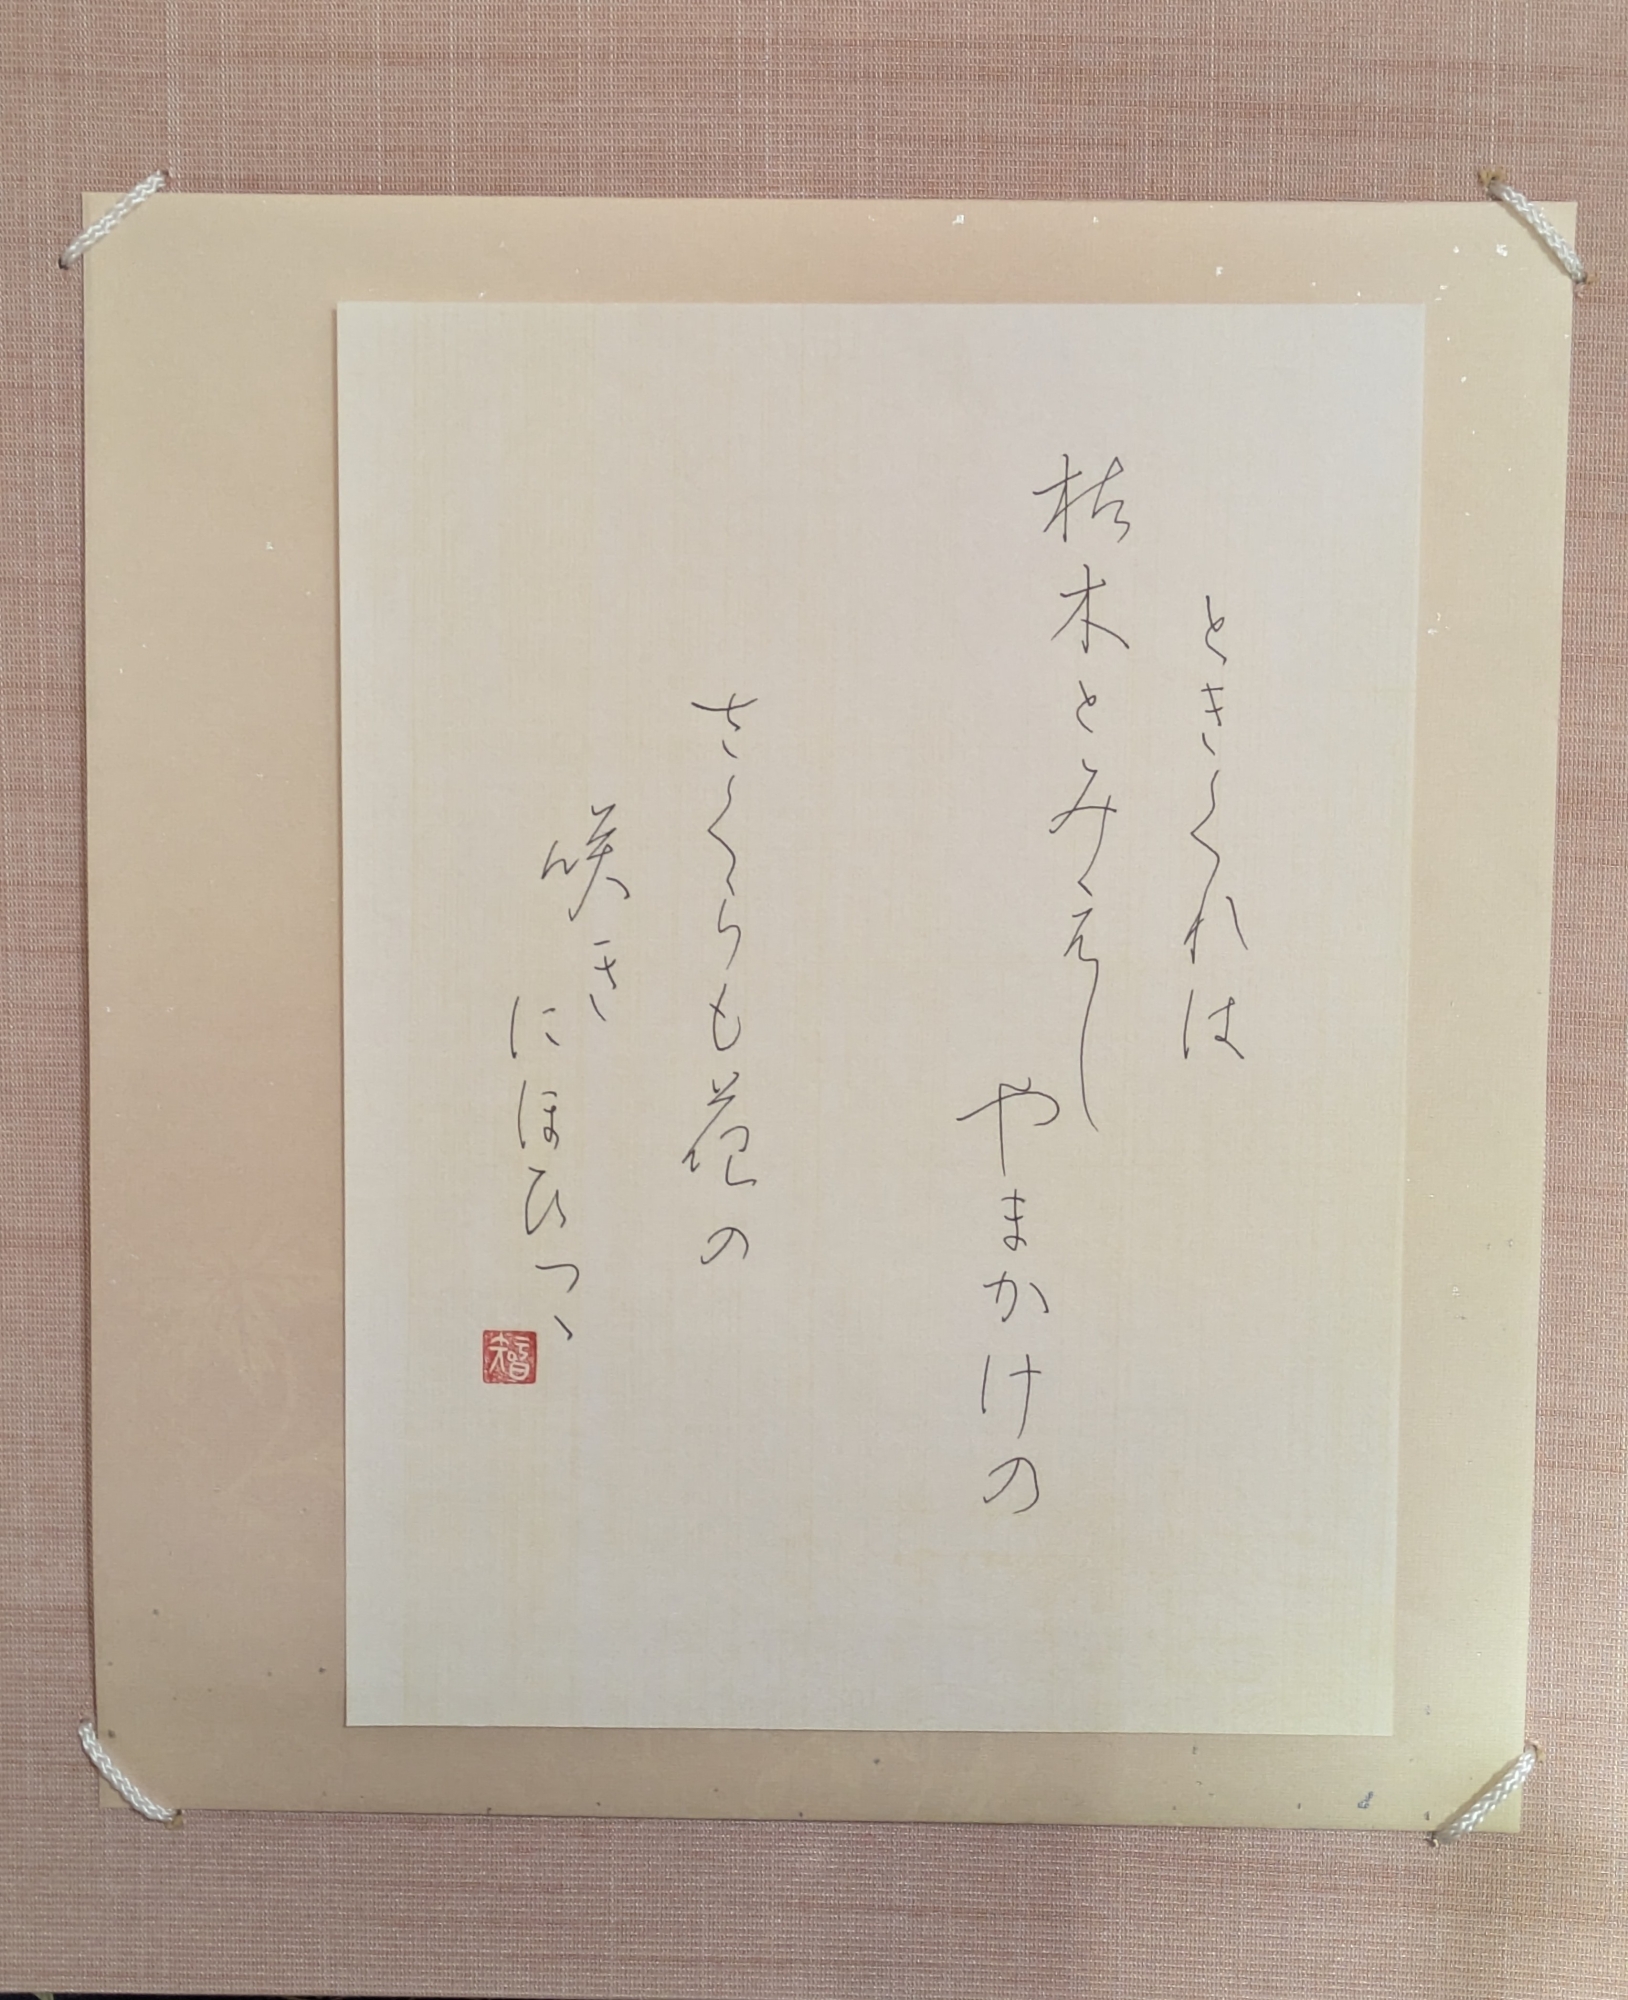 ときくれは
枯木とみえし
やまかけの
さくらも花の
咲き
にほひつゝ
智